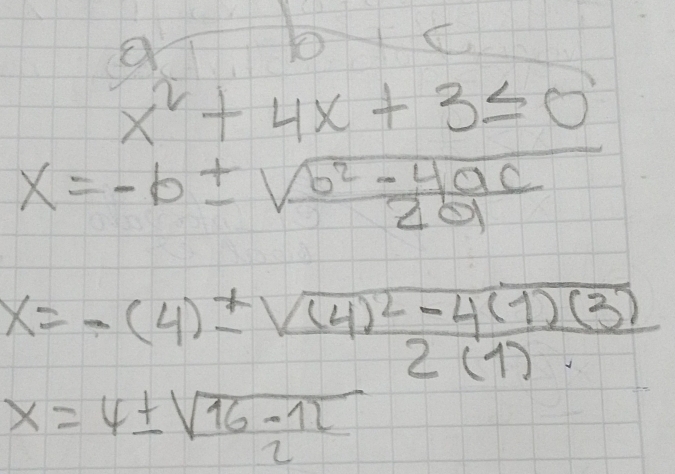 a b c
x² + 4x + 3 ≤ 0
X = -b ± √b² - 4ac / 2a
X = -(4) ± √(4)² - 4(1)(3) / 2(1)
X = 4 ± √16 - 12 / 2